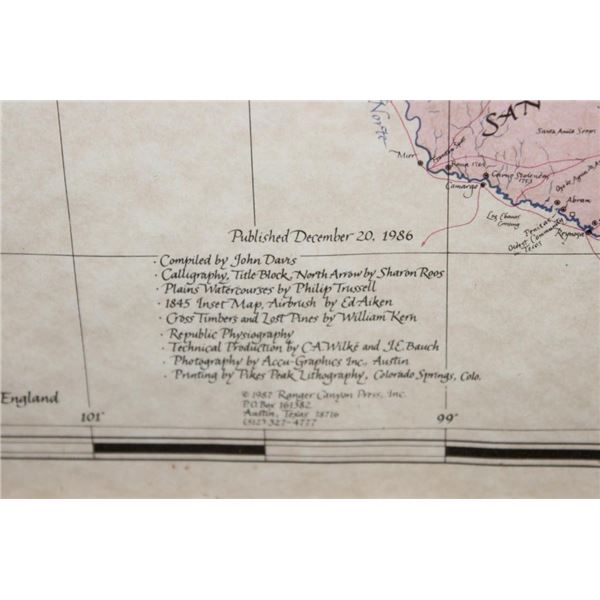 Norte
SAN
Santa Anita Seeps
Mier
Roma 1765
Camp Stolenden
1753
Camargo
Abram
Los Ebanos
Crossing
Penitas
Oldest Community
Texas
Reynosa
Published December 20, 1986
· Compiled by John Davis
· Calligraphy, Title Block, North Arrow by Sharon Roos
· Plains Watercourses by Philip Trussell
· 1845 Inset Map, Airbrush by Ed Aiken
· Cross Timbers and Lost Pines by William Kern
· Republic Physiography
· Technical Production by C.A. Wilké and J.E. Bauch
· Photography by Accu-Graphics Inc., Austin
· Printing by Pikes Peak Lithography, Colorado Springs, Colo.
© 1987 Ranger Canyon Press, Inc.
P.O. Box 161382
Austin, Texas 78716
(512) 327-4777
England
101°
99°